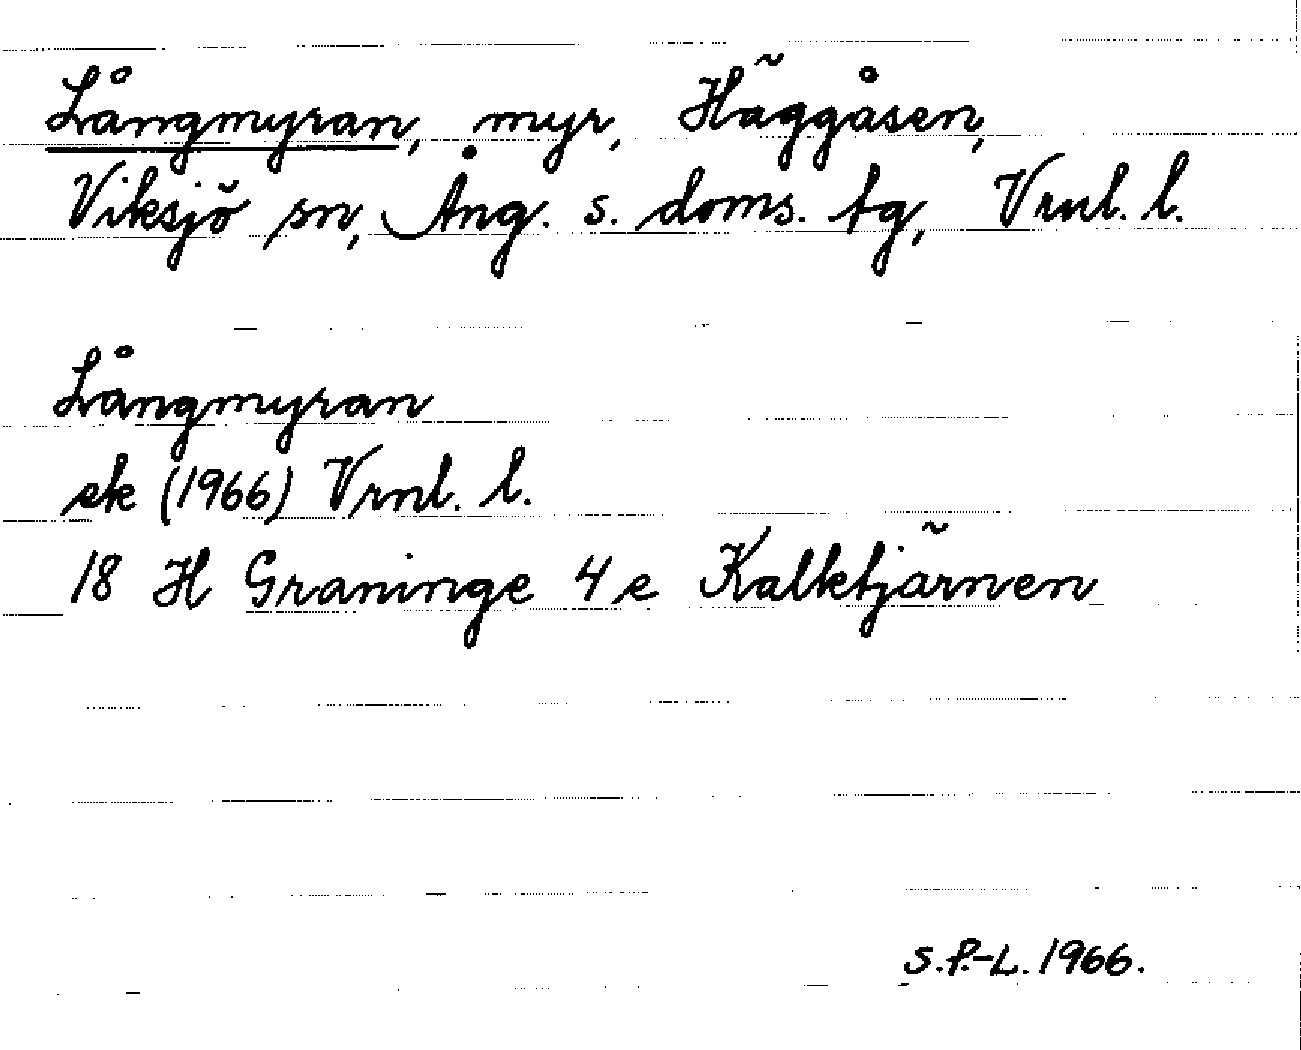 Långmyran, myr, Häggåsen,
Viksjö sn, Ång. s. doms. tg, Vrnl. l.
Långmyran
ek (1966) Vrnl. l.
18 H Graninge 4 e Kalktjärnen
S.P.-L. 1966.